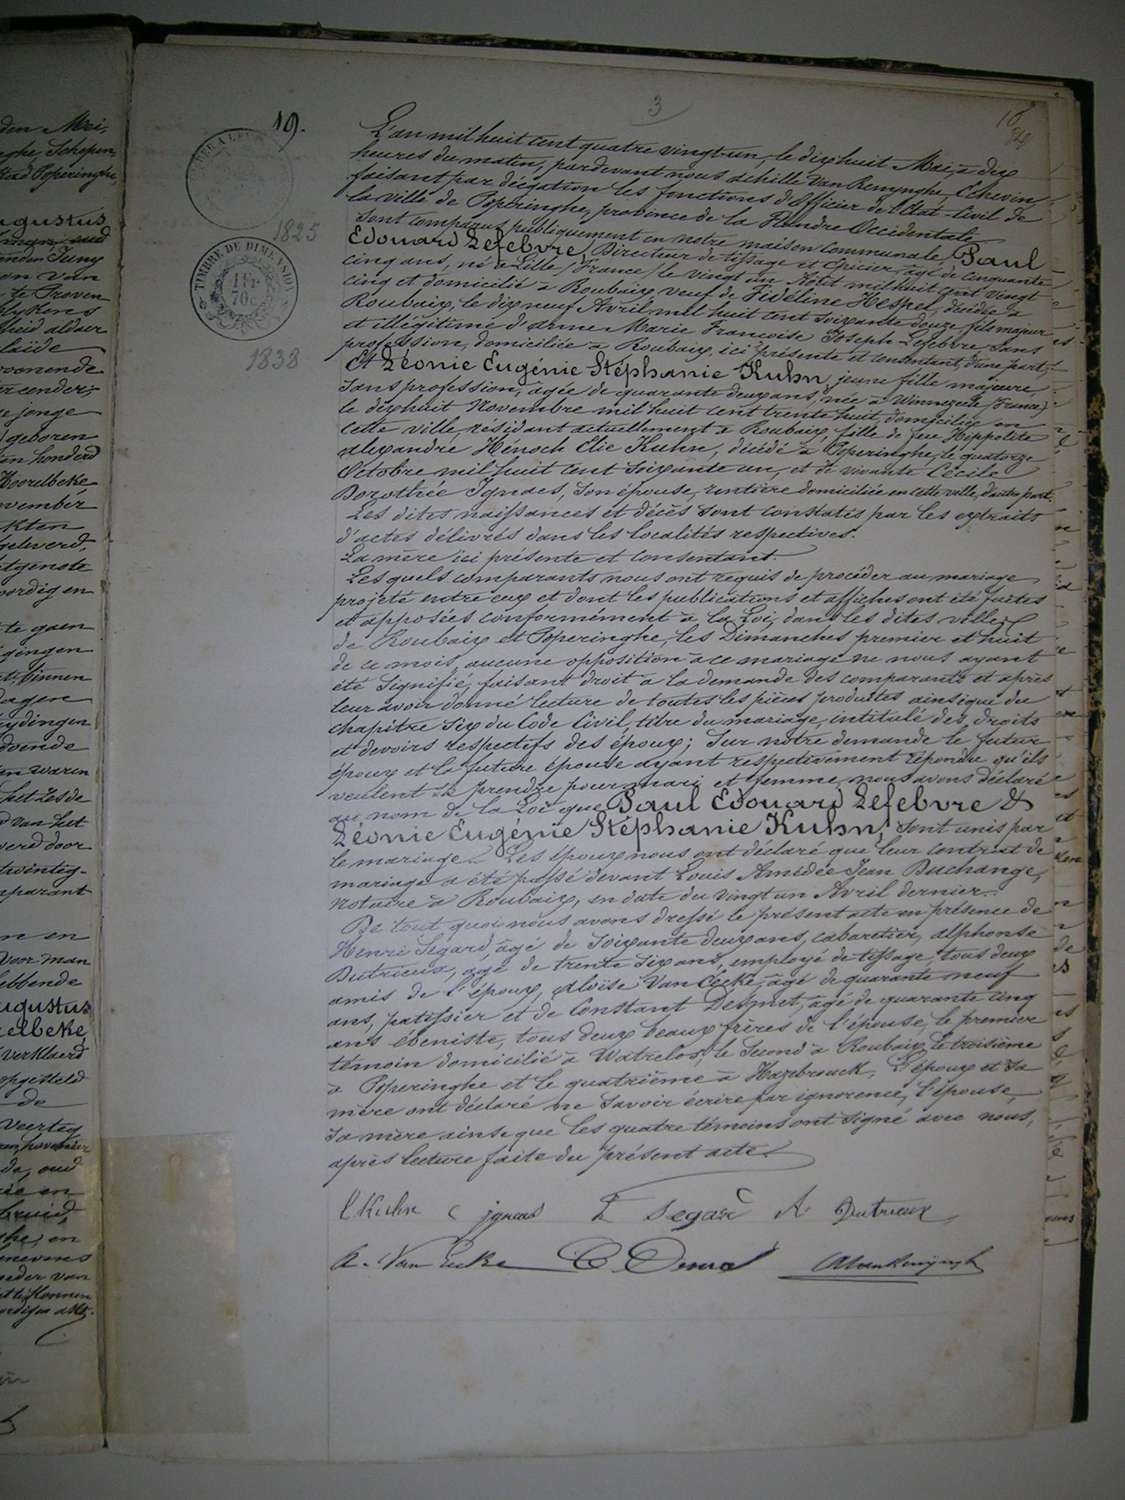 den Mei,
nghe, Schepen,
stad Poperinghe,
ugustus
te Proven
heid aldaar
laïde
woonende
de jonge
geboren
honderd
Hoorelbeke
vember
kten
geleverd,
tgenote
oordig en
te gaen
binnen
dagen
doende
van waren
het zesde
van het
werd door
twintig
mparant
n en
voor man
hebbende
ugustus
elbeke,
verklaerd
opgesteld
de
veertig
oud
bruid,
en
moeder van
3
10
19.
1825
TIMBRE DE DIMENSION
1 Fr
70c
1838
L'an mil huit cent quatre vingt-un, le dix huit Mai, à dix
heures du matin, pardevant nous Achille Van Renynghe, Echevin
faisant par délégation les fonctions d'Officier de l'Etat-Civil de
la ville de Poperinghe, province de la Flandre Occidentale
sont comparus publiquement en notre maison communale, Paul
Edouard Lefebvre, Directeur de tissage et épicier, agé de cinquante
cinq ans, né à Lille (France) le vingt un Août mil huit cent vingt
cinq et domicilié à Roubaix veuf de Fidéline Hespel, décédée à
Roubaix, le dix neuf Avril mil huit cent soixante douze, fils majeur
et illégitime d'Anne Marie Françoise Joseph Lefebvre sans
profession, domiciliée à Roubaix, ici présente et consentant, d'une part,
Et Léonie Eugénie Stéphanie Kuhn, jeune fille majeure,
sans profession, agée de quarante deux ans, née à Winnezeele (France)
le dixhuit Novembre mil huit cent trente huit, domiciliée en
cette ville, résidant actuellement à Roubaix, fille de feu Hippolite
Alexandre Hénoch Elie Kuhn, décédé à Poperinghe, le quatorze
Octobre mil huit cent soixante un, et de vivante Cécile
Dorothée Ignaes, son épouse, rentière domiciliée en cette ville, d'autre part.
Les dites naissances et décès sont constatés par les extraits
d'actes délivrés dans les localités respectives.
La mère ici présente et consentant
Lesquels comparants nous ont requis de procéder au mariage
projeté entre eux et dont les publications et affiches ont été faites
et apposées conformément à la Loi, dans les dites villes
de Roubaix et Poperinghe, les Dimanches premier et huit
de ce mois, aucune opposition à ce mariage ne nous ayant
été signifié, faisant droit à la demande des comparants et après
leur avoir donné lecture de toutes les pièces produites ainsi que du
chapitre six du Code Civil, titre du mariage, intitulé des droits
et devoirs respectifs des époux; sur notre demande le futur
époux et la future épouse ayant respectivement répondu qu'ils
veulent se prendre pour mari et femme, nous avons déclaré
au nom de la Loi que Paul Edouard Lefebvre &
Léonie Eugénie Stéphanie Kuhn, sont unis par
le mariage. Les époux nous ont déclaré que leur contrat de
mariage a été passé devant Louis Amédée Jean Duchange,
notaire à Roubaix, en date du vingt un Avril dernier.
De tout quoi nous avons dressé le présent acte en présence de
Henri Segard, âgé de soixante deux ans, cabaretier, Alphonse
Dutrieux, âgé de trente six ans, employé de tissage, tous deux
amis de l'époux, Aloïse Van Eecke, âgé de quarante neuf
ans, patissier et de Constant Desmet, âgé de quarante cinq
ans ébéniste, tous deux beaux frères de l'épouse, le premier
témoin domicilié à Watrelos, le second à Roubaix, le troisième
à Poperinghe et le quatrième à Hazebrouck. L'époux et sa
mère ont déclaré ne savoir écrire par ignorence, l'épouse,
sa mère ainsi que les quatre témoins ont signé avec nous,
après lecture faite du présent acte.
L Kuhn C Ignaes H Segard A. Dutrieux
A. Van Eecke C. Desmet AVanRenynghe